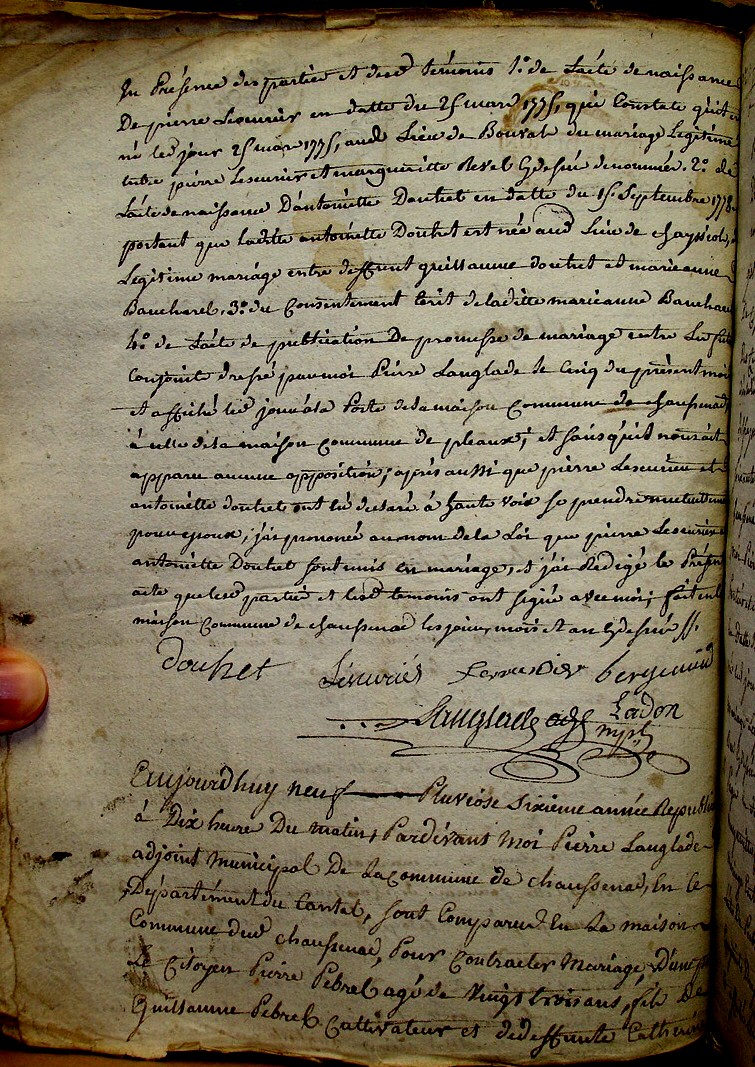 En Présence des parties et desd témoins 1.º de L'acte de naissance
De pierre Lescurier en datte du 25 mars 1775, qui Constate qu'il est
né led jour 25 mars 1775, aud Lieu de Bouval du mariage Legitime
entre pierre Lescurier et margueritte Revel Cydessus denommés. 2.º de
L'acte de naissance D'antoinette Douhet en datte du 15 Septembre 1778
portant que laditte antoinette Douhet est née aud Lieu de chayssiol,
Legitime mariage entre deffunt guillaume douhet et marie anne
Baucharel. 3.º du Consentement Ecrit de laditte marie anne Bauchare
4.º de L'acte de publication De promesse de mariage entre Les futs
Conjoints dressé par moi Pierre Langlade le Cinq du présent mois
et affiché led jour à la Porte de la maison Commune de chaussenac
à celle de la maison Commune de pleaux, et sans qu'il nous ait
apparu aucune opposition; après aussi que pierre Lescurier et
antoinette douhet ont eû declaré à haute voix se prendre mutuelleme
pour epoux, j'ai prononcé au nom de la Loi que pierre Lescurier
antoinette Douhet sont unis en mariage, et j'ai Redigé le Présent
acte que les parties et lesd temoins ont signé avec moi; fait en la
maison Commune de chaussenac les jour, mois et an Cydessus
Douhet Lescurier bergeriou
Langlade adjt Ladon
mpl
Aujourdhuy neuf Pluviose Sixieme année Republi
à Dix heure Du matin, Pardevant Moi Pierre Langlade
adjoint Municipal De La Commune de chaussenac, En Le
Département du Cantal, sont Comparus En La maison
Commune dud chaussenac, Pour Contracter Mariage, D'une p
Le Citoyen Pierre Pebrel agé de Vingt trois ans, fils De
Guillaume Pebrel Cultivateur et de deffunte Catherine